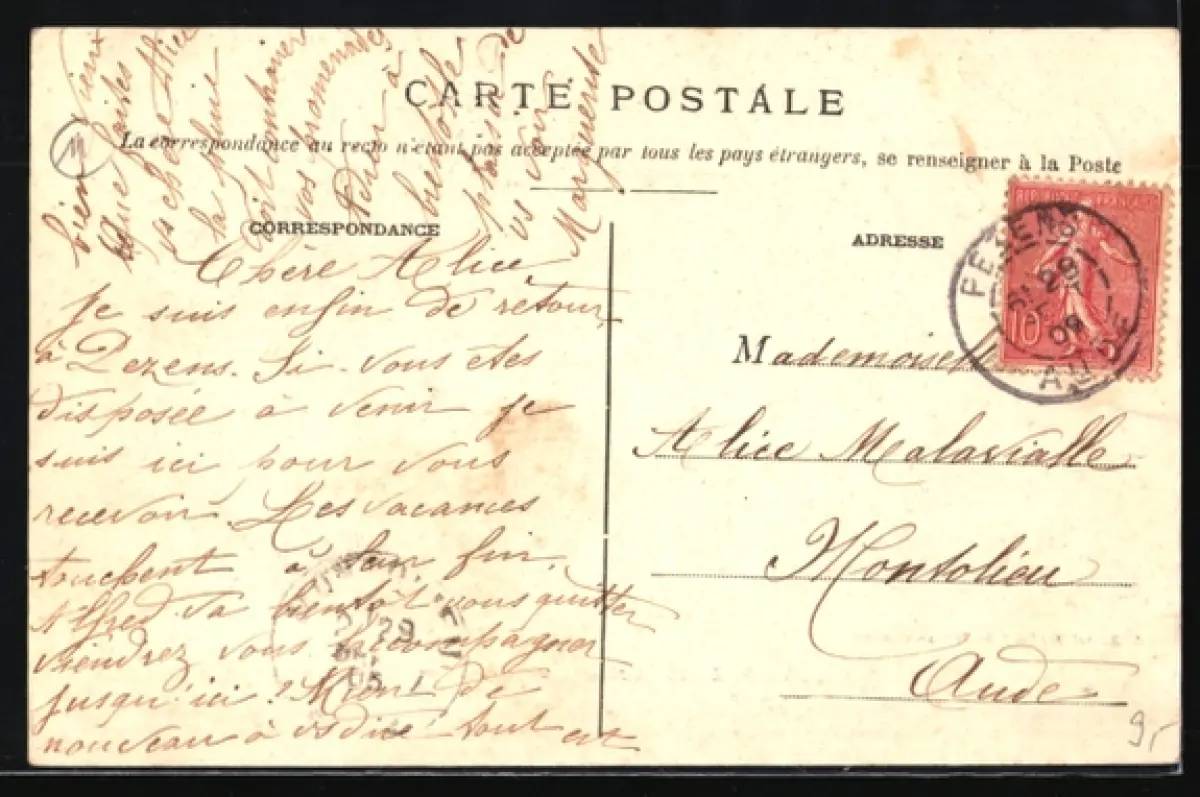 CARTE POSTALE
La correspondance au recto n'étant pas acceptée par tous les pays étrangers, se renseigner à la Poste
CORRESPONDANCE
ADRESSE
Chère Alice,
Je suis enfin de retour
à Pezens. Si vous êtes
disposée à venir je
suis ici pour vous
recevoir. Les vacances
touchent à leur fin,
Alfred va bientôt vous quitter
viendrez vous l'accompagner
jusqu'ici? de
nouveau à vs dire tout est
bien
que faites
vs chère Alice
la pluie
doit
vos promenades
Adieu à
bientôt le
plaisir de
vs voir
Marguerite
Mademoiselle
Alice Malavialle
Montolieu
Aude
PEZENS
29
09
AUDE
10
29
9,-